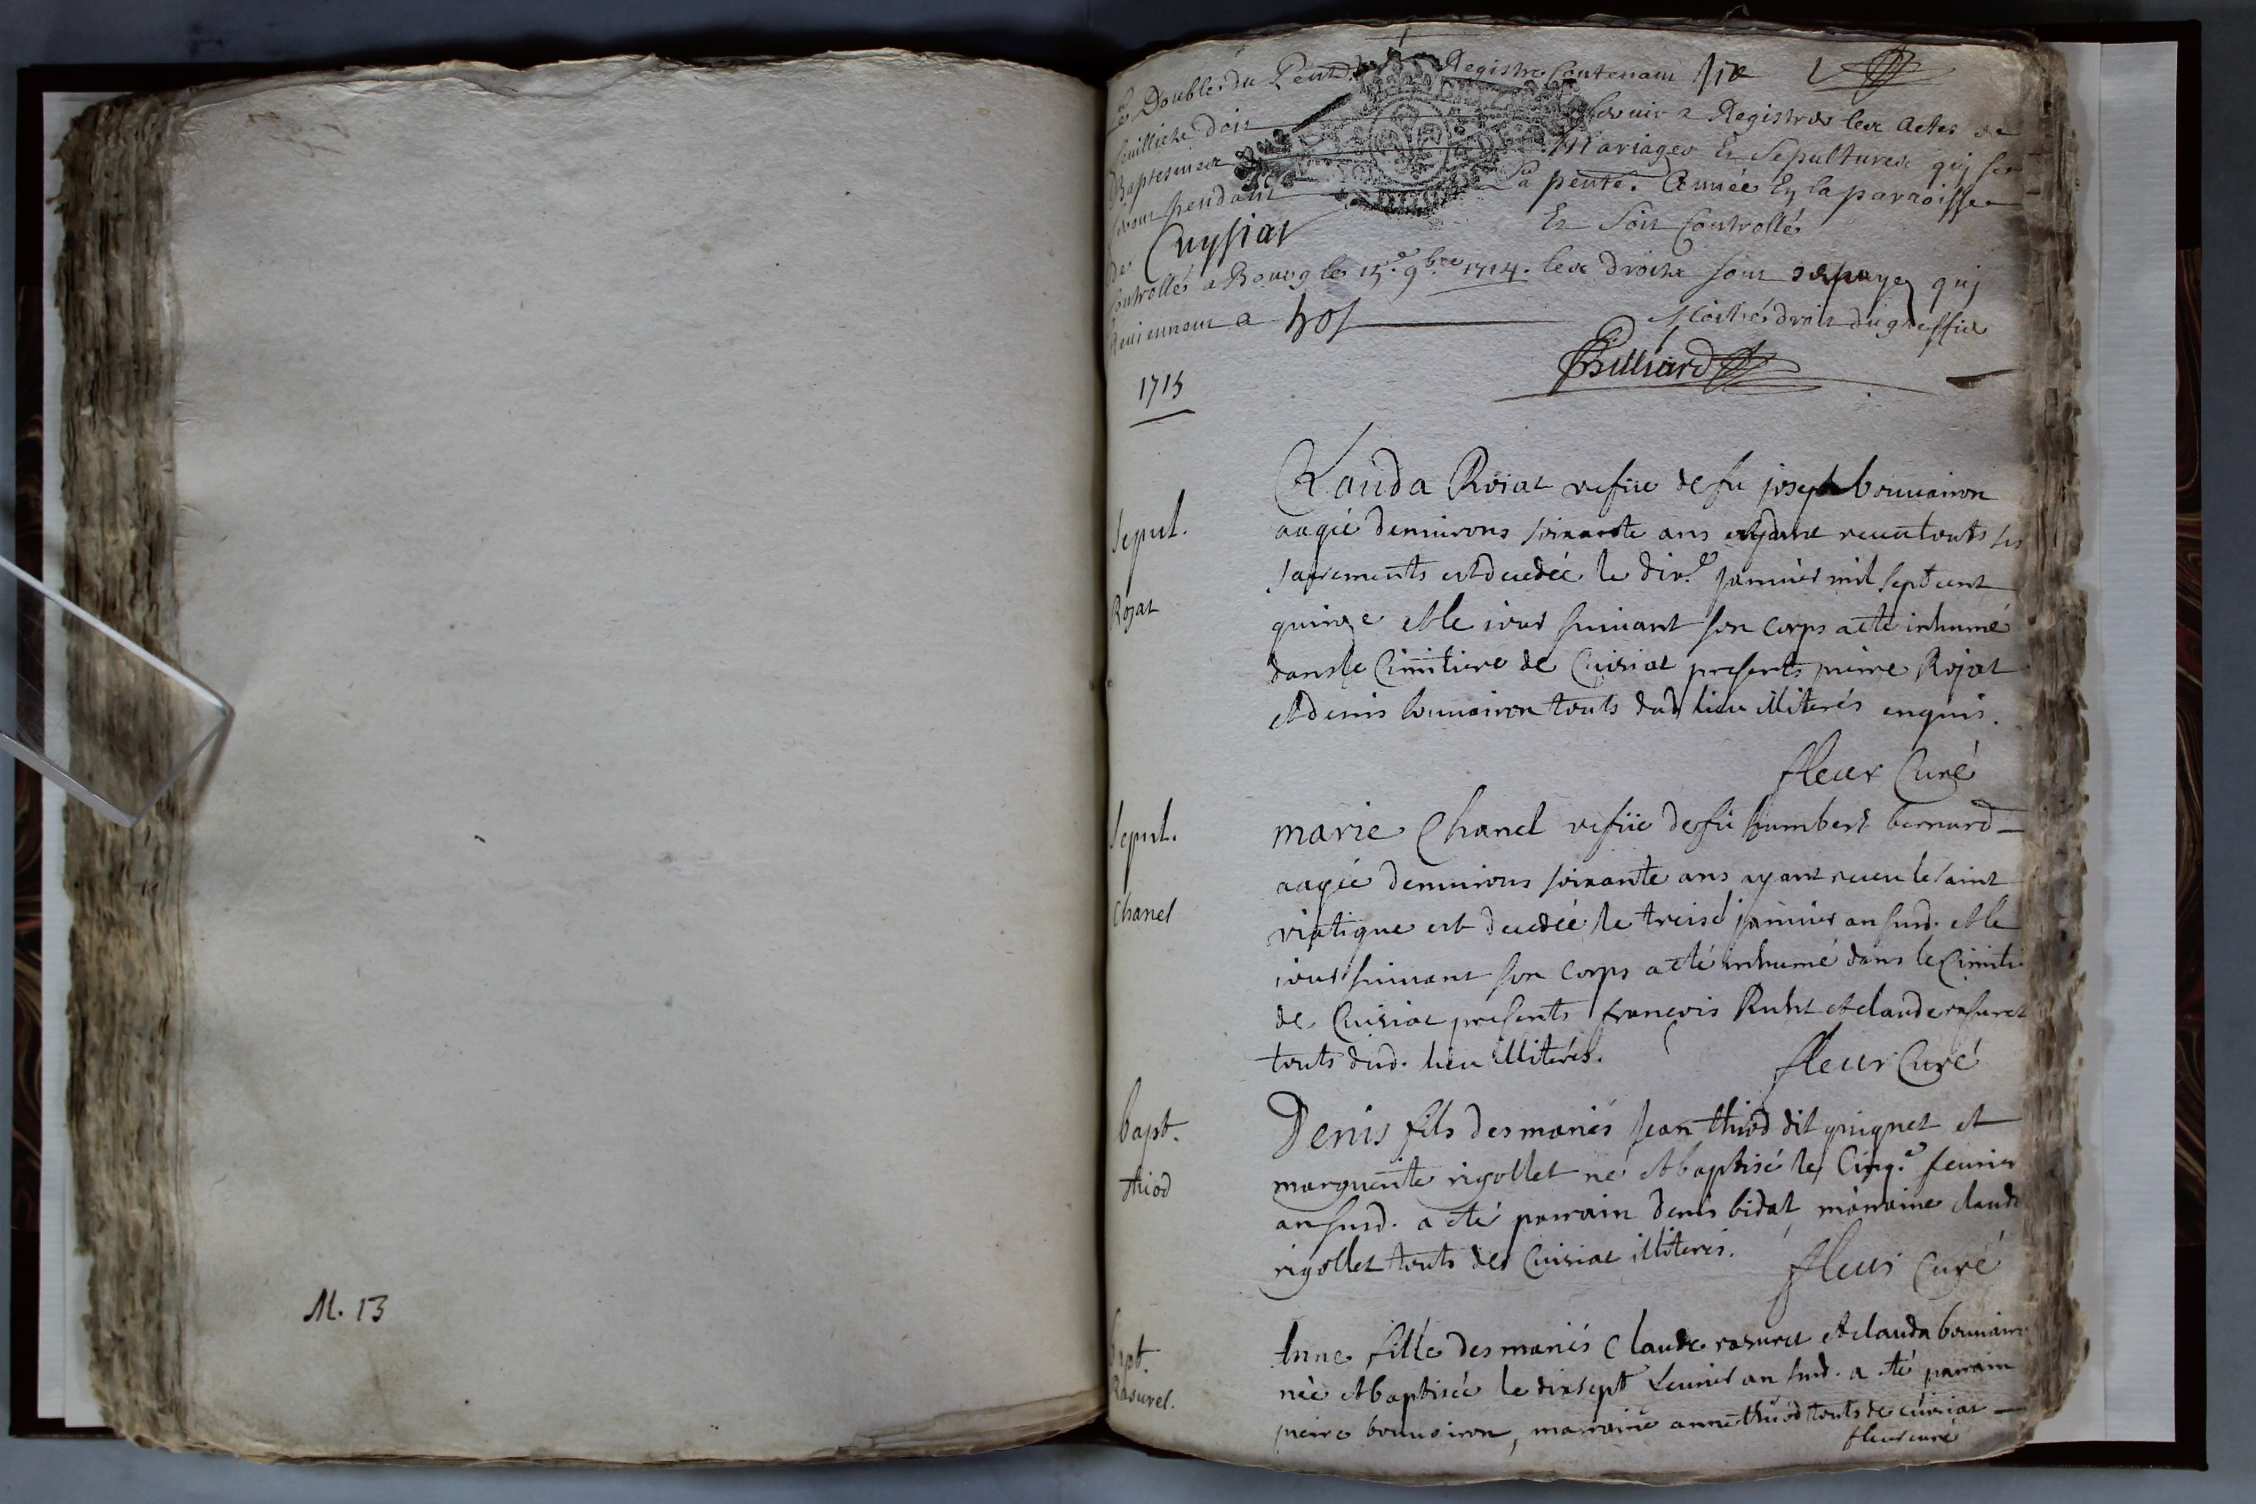 M. 13
Le Double du Registre Contenant six
feuilliets doit servir a Registrer les Actes de
Baptesmes Mariages Et Sepultures quj se
feront pendant La pente. Année En la parroisse
de Cuysiat Et Soit Controllé
Controllé a Bourg le 15.e 9bre 1714. les droits sont quj
Reviennent a
droit du greffier
Billiard
1715
Sepul.
Rojat
Clauda Rojat vefüe de fu joseph bouvairon
aagée denvirons soixante ans ayant receu touts ses
sacrements est decedée le dix.e janvier mil sept cent
quinze et le jour suivant son corps a eté inhumé
dans le Cimitiere de Cuisiat presents pierre Rojat
et denis bouvairon touts dud lieu illiterés enquis.
fleur Curé
Sepul.
Chanel
marie Chanel vefüe de fü humbert bernard
aagée denvirons soixante ans ayant receu le saint
viatique est decedée le treise janvier an susd. et le
jour suivant son corps a eté inhumé dans le Cimiti.
de Cuisiat presents françois Ruht et claude rasurel
touts dud. lieu illiterés.
fleur Curé
bapt.
thiod
Denis fils des mariés Jean thiod dit guignet et
marguerite rigollet né et baptisé le Cinq.e fevrier
an susd. a eté parrain denis bidat marraine claude
rigollet touts de Cuisiat illiterés.
fleur Curé
bapt.
Rasurel.
Anne fille des mariés Claude rasurel et clauda bouvairon
née et baptisée le dixsept fevrier an susd. a eté parrain
pierre bouvairon, marraine anne thiod touts de cuisiat
fleur curé